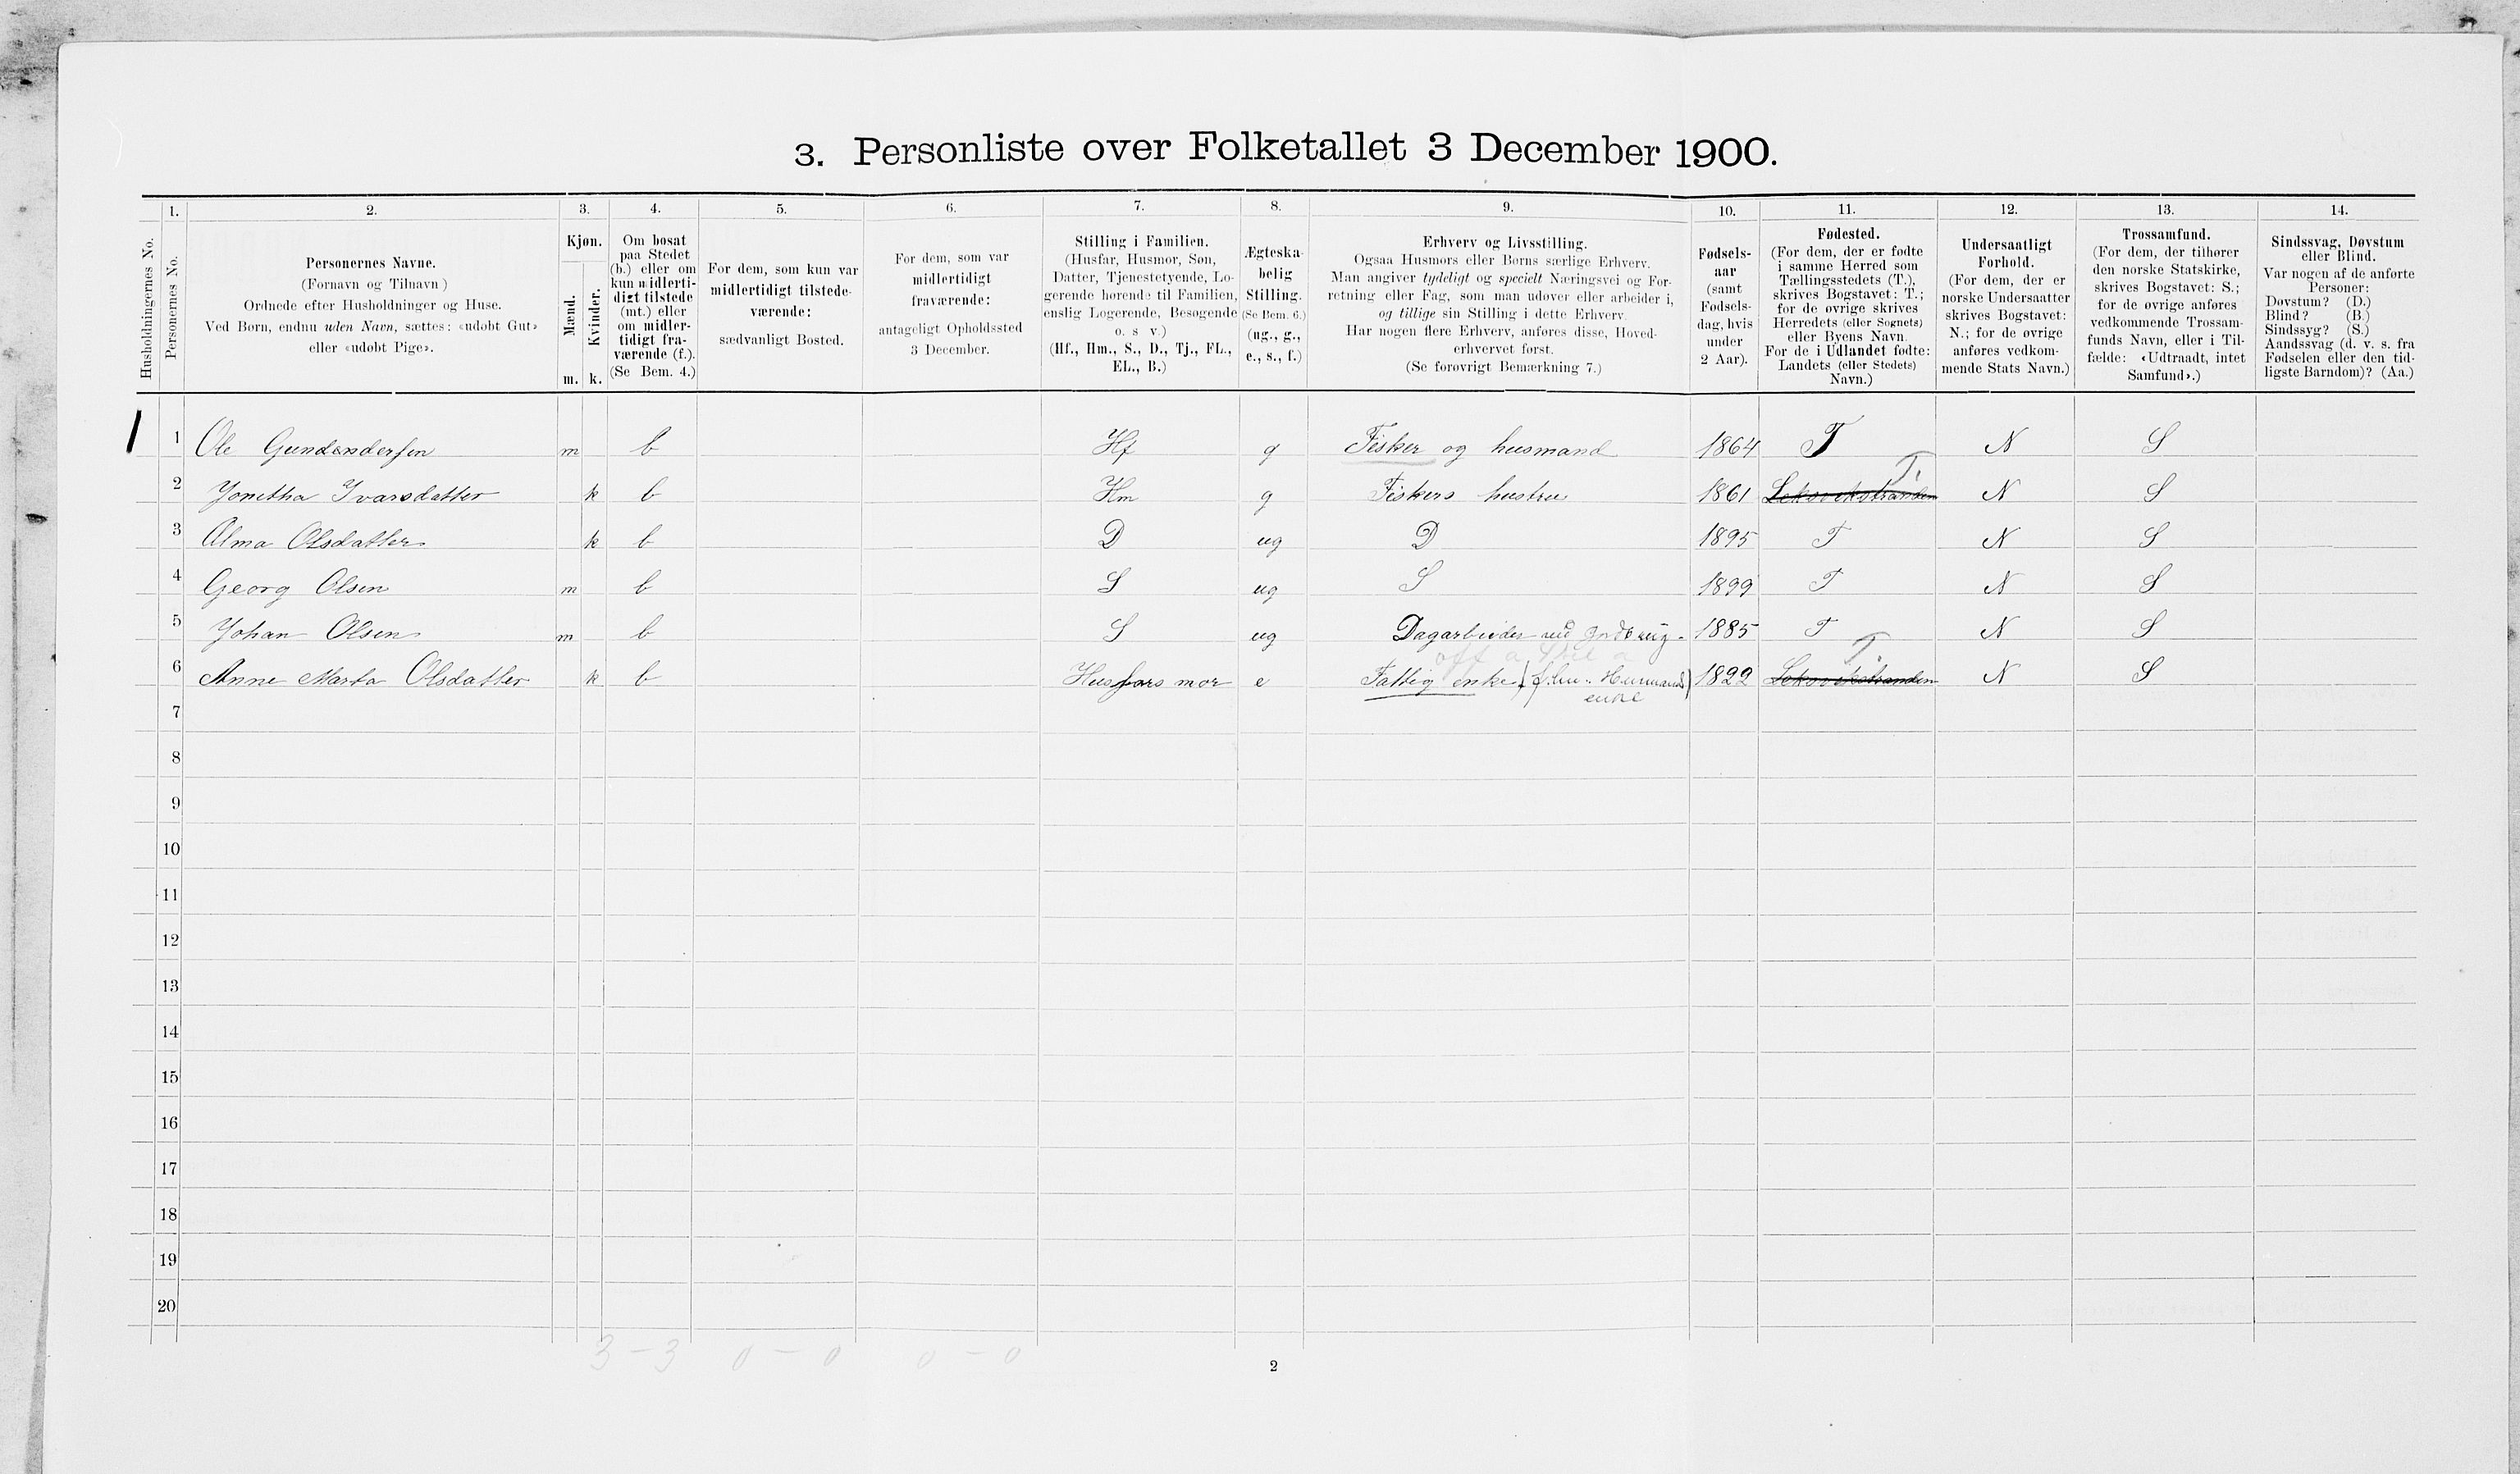 3. Personliste over Folketallet 3 December 1900.
1. 2. 3. 4. 5. 6. 7. 8. 9. 10. 11. 12. 13. 14.
Husholdningernes No.
Personernes No.
Personernes Navne.
(Fornavn og Tilnavn)
Ordnede efter Husholdninger og Huse.
Ved Børn, endnu uden Navn, sættes: «udøbt Gut»
eller «udøbt Pige».
Kjøn.
Mænd.
Kvinder.
m. k.
Om bosat
paa Stedet
(b.) eller om
kun midlerti-
digt tilstede
(mt.) eller
om midler-
tidigt fra-
værende (f.).
(Se Bem. 4.)
For dem, som kun var
midlertidigt tilstede-
værende:
sædvanligt Bosted.
For dem, som var
midlertidigt
fraværende:
antageligt Opholdssted
3 December.
Stilling i Familien.
(Husfar, Husmor, Søn,
Datter, Tjenestetyende, Lo-
gerende hørende til Familien,
enslig Logerende, Besøgende
o. s v.)
(Hf., Hm., S., D., Tj., FL.,
EL., B.)
Ægteska-
belig
Stilling.
(Se Bem. 6.)
(ug., g.,
e., s., f.)
Erhverv og Livsstilling.
Ogsaa Husmors eller Børns særlige Erhverv.
Man angiver tydeligt og specielt Næringsvei og For-
retning eller Fag, som man udøver eller arbeider i,
og tillige sin Stilling i dette Erhverv.
Har nogen flere Erhverv, anføres disse, Hoved-
erhvervet først.
(Se forøvrigt Bemærkning 7.)
Fødsels-
aar
(samt
Fødsels-
dag, hvis
under
2 Aar).
Fødested.
(For dem, der er fødte
i samme Herred som
Tællingsstedets (T.),
skrives Bogstavet: T.;
for de øvrige skrives
Herredets (eller Sognets)
eller Byens Navn.
For de i Udlandet fødte:
Landets (eller Stedets)
Navn.)
Undersaatligt
Forhold.
(For dem, der er
norske Undersaatter
skrives Bogstavet:
N.; for de øvrige
anføres vedkom-
mende Stats Navn.)
Trossamfund.
(For dem, der tilhører
den norske Statskirke,
skrives Bogstavet: S.;
for de øvrige anføres
vedkommende Trossam-
funds Navn, eller i Til-
fælde: «Udtraadt, intet
Samfund».)
Sindssvag, Døvstum
eller Blind.
Var nogen af de anførte
Personer:
Døvstum? (D.)
Blind? (B.)
Sindssyg? (S.)
Aandssvag (d. v. s. fra
Fødselen eller den tid-
ligste Barndom)? (Aa.)
1 1 Ole Gundendersen m b Hf g Fisker og husmand 1864 T N S
2 Jonetha Ivarsdatter k b Hm g Fiskers hustru 1861 Leksvikstranden T. N S
3 Alma Olsdatter k b D ug D 1895 T N S
4 Georg Olsen m b S ug S 1899 T N S
5 Johan Olsen m b S ug Dagarbeider ved Jordbrug. 1885 T N S
6 Anne Marta Olsdatter k b Husfars mor e Fattig enke 1822 Leksvikstranden T. N S
enke
7
8
9
10
11
12
13
14
15
16
17
18
19
20
3 – 3 0 – 0 0 – 0
2